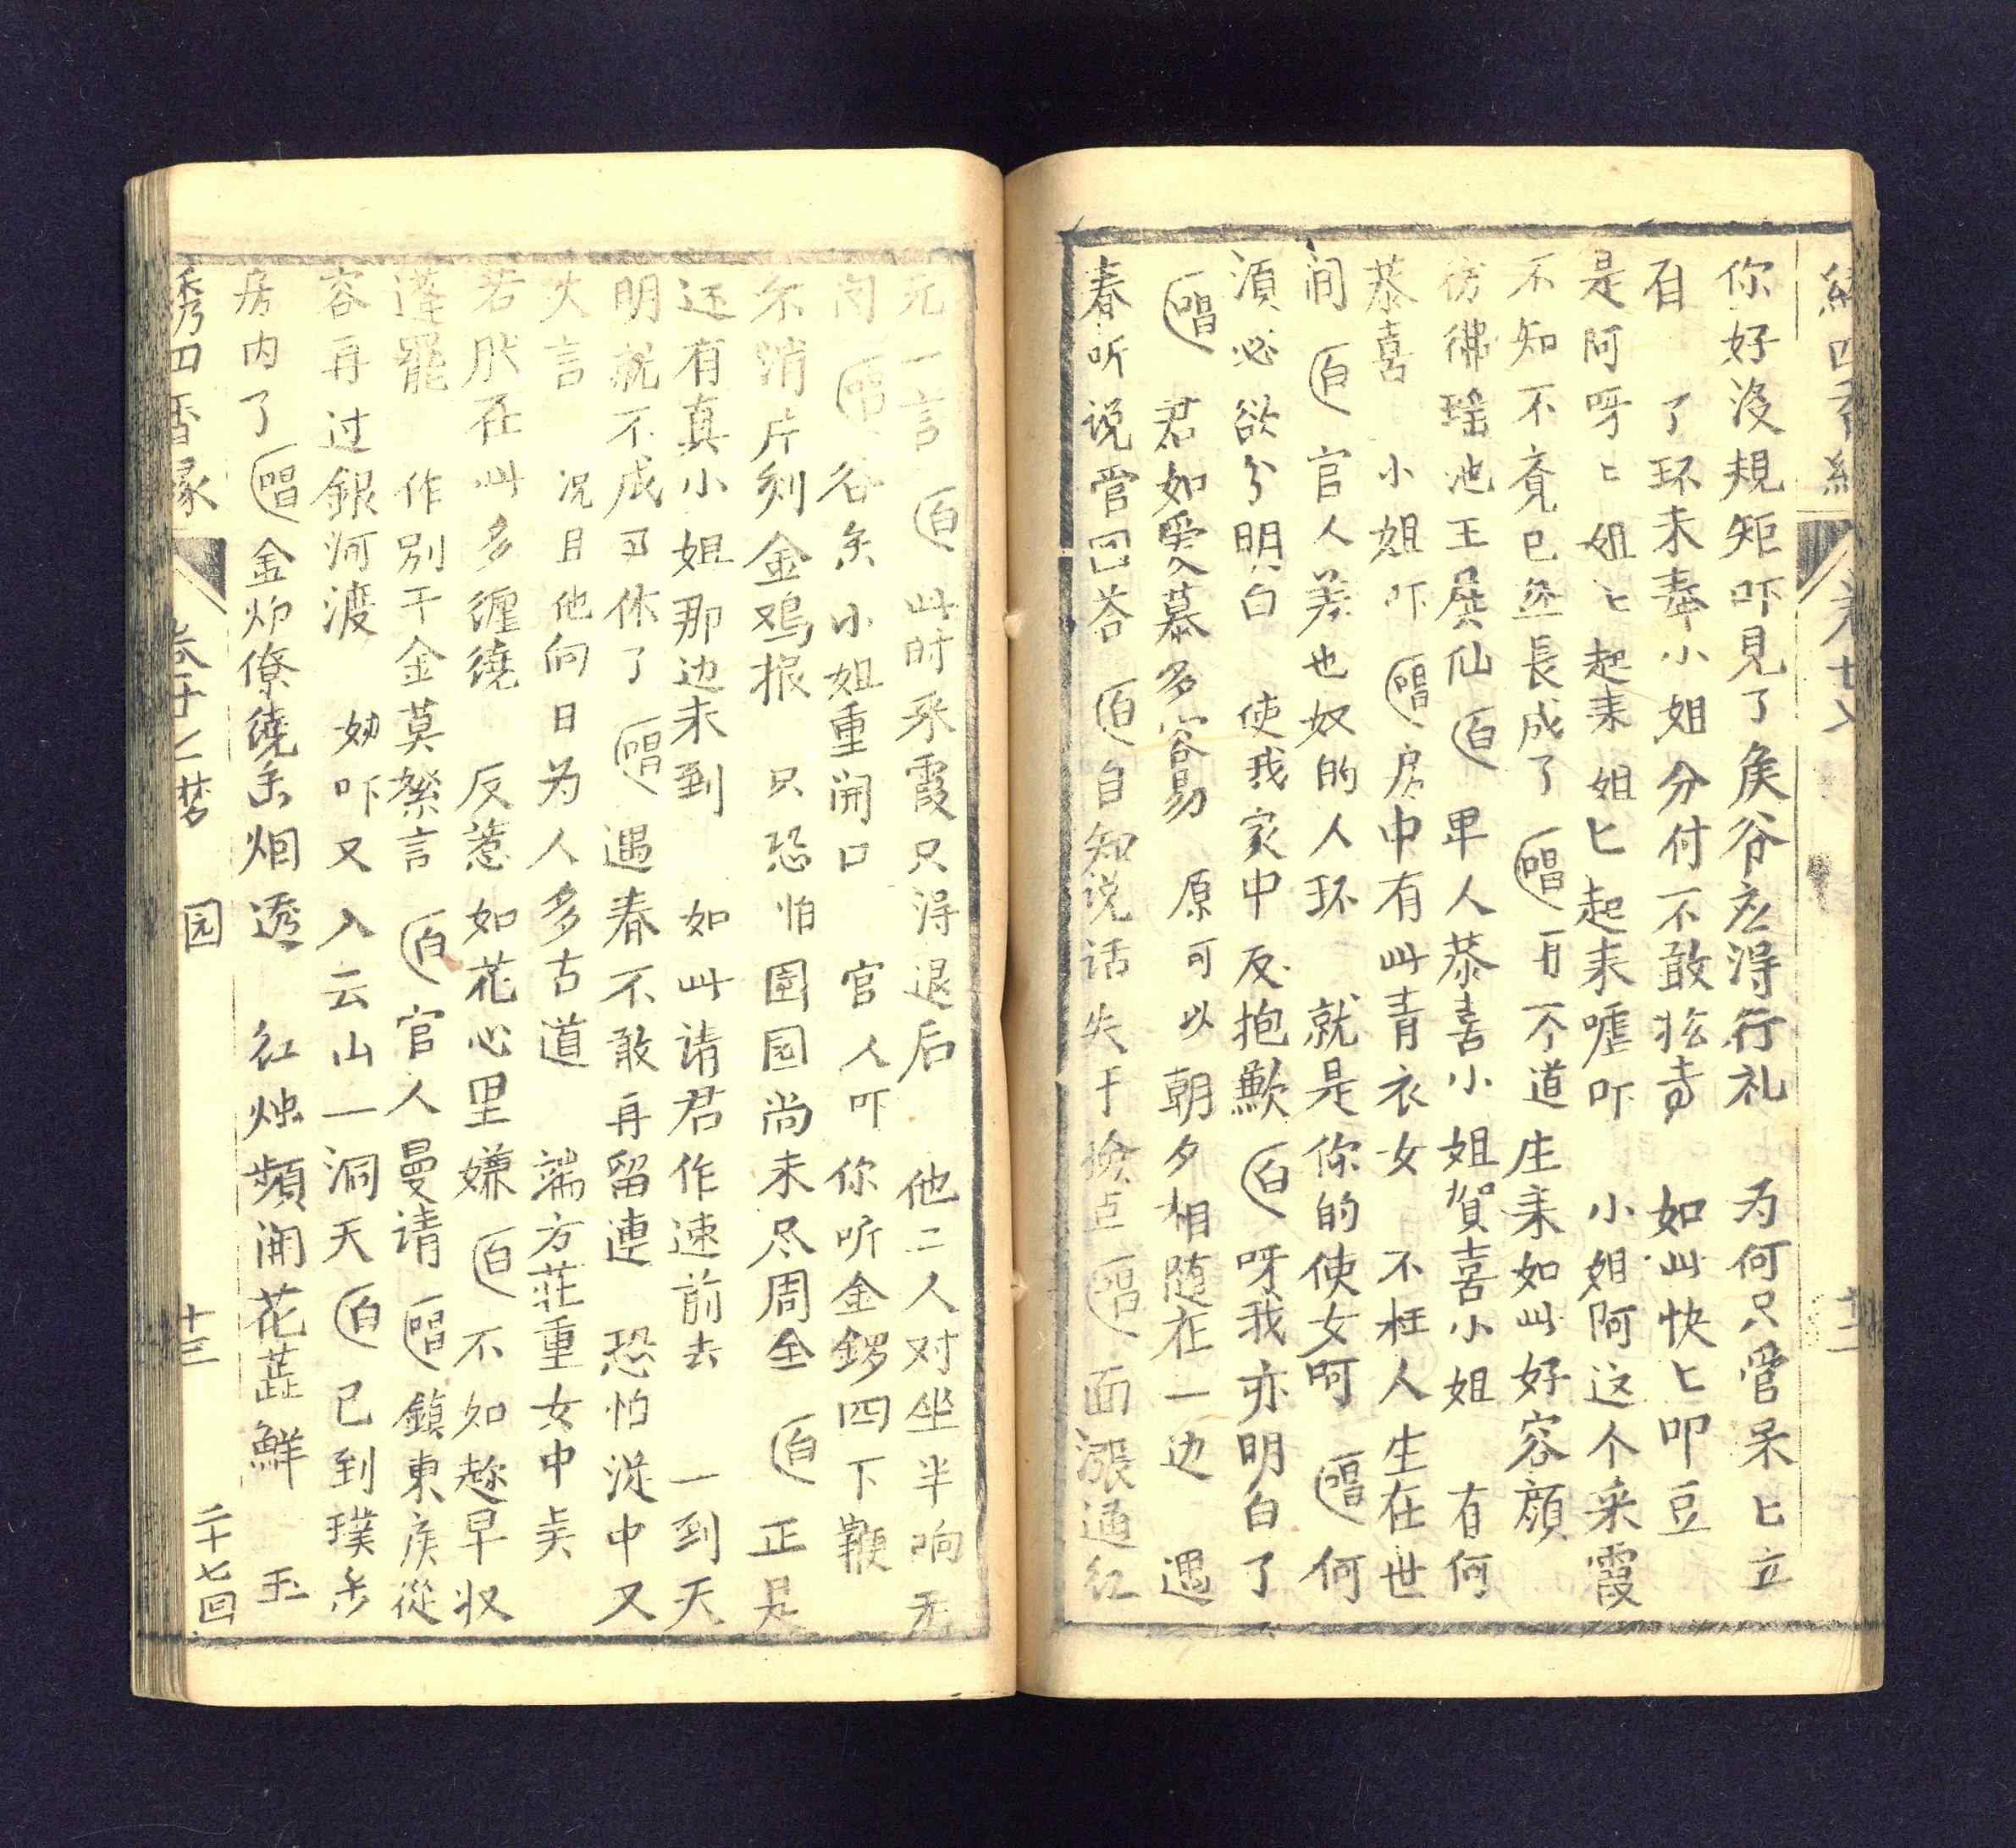 你好没規矩吓見了矦爷応淂行礼　为何只管呆匕立
百　了环未奉小姐分付不敢　　如此快匕叩豆
是阿呀匕姐匕起来姐匕起来嘘吓　小姐阿这个采霞
不知不竟已経長成了（唱）再不道庄来如此好容顔
彷彿瑶池王仙（白）甲人恭喜小姐賀喜小姐　有何
恭喜　小姐吓（唱）房中有此青衣女　不枉人生在世
间（白）官人差也奴的人环　就是你的使女呵（唱）何
湏必欲分明白　使我家中反抱歉（白）呀我亦明白了
（唱）君如爱慕多容易　原可以朝夕相随在一边　遇
春听说管回答（白）自知说话失于捡点（唱）面漲通红
无一言（白）此时采霞只淂退后　他二人对坐半响无
闲（唱）谷　小姐重開口　官人吓你听金鑼四下鞭
不消片刻金鸡报　只恐怕国园尚未尽周全（白）正是
还有真小姐那边未到　如此请君作速前去　一到天
明就不成　休了（唱）遇春不敢再留連　恐怕従中又
火言　况且他向日为人多古道　端方荘重女中
若肰在此多纏繞　反惹如花心里嫌（白）不如趂早収
蓬罷　作别千金莫絮言（白）官人曼请（唱）鎮東矦從
容再过銀河渡　妙吓又入云山一洞天（白）已到璞
房内了（唱）金炉繚繞　烟透　红烛頻開花蕋鮮　玉
秀四香緣　园　十三　二十七回